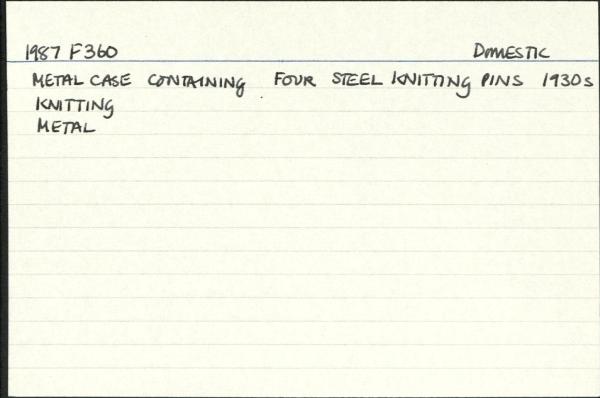 1987 F360 DOMESTIC
METAL CASE CONTAINING FOUR STEEL KNITTING PINS 1930s
KNITTING
METAL